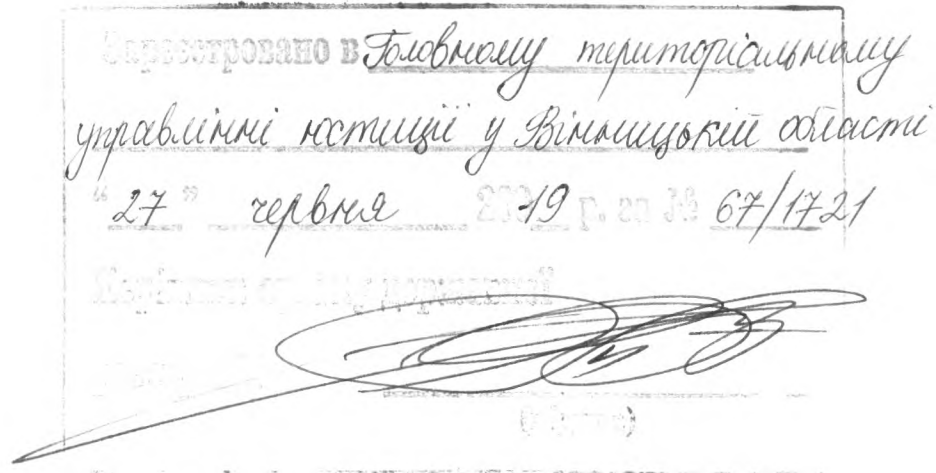 Зареєстровано в Головному територіальному
управлінні юстиції у Вінницькій області
“ 27 ” червня 2019 р. за № 67/1721
Керівник органу державної